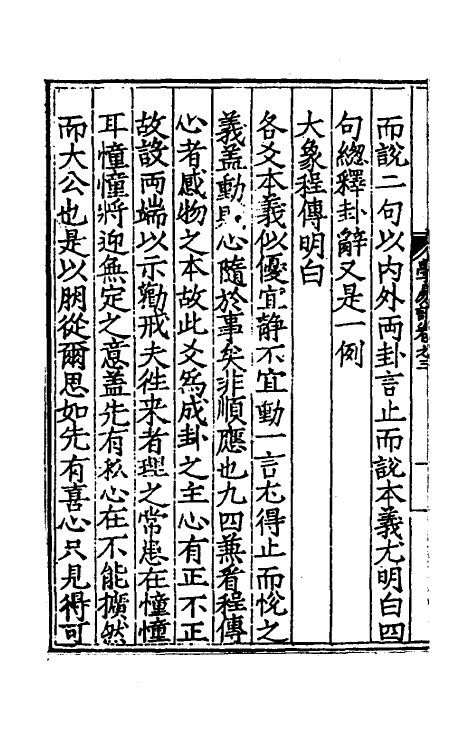 而說二句以内外两卦言止而說本義尤明白四
句緫釋卦辭又是一例
大象程傳明白
各爻本義似優宜静不宜動一言尤得止而悅之
義盖動則心隨於事矣非順應也九四兼看程傳
心者感物之本故此爻為成卦之主心有正不正
故設两端以示勸戒夫徃来者理之常患在憧憧
耳憧憧将迎無定之意盖先有私心在不能擴然
而大公也是以朋從爾思如先有喜心只見得可
學易記卷之三